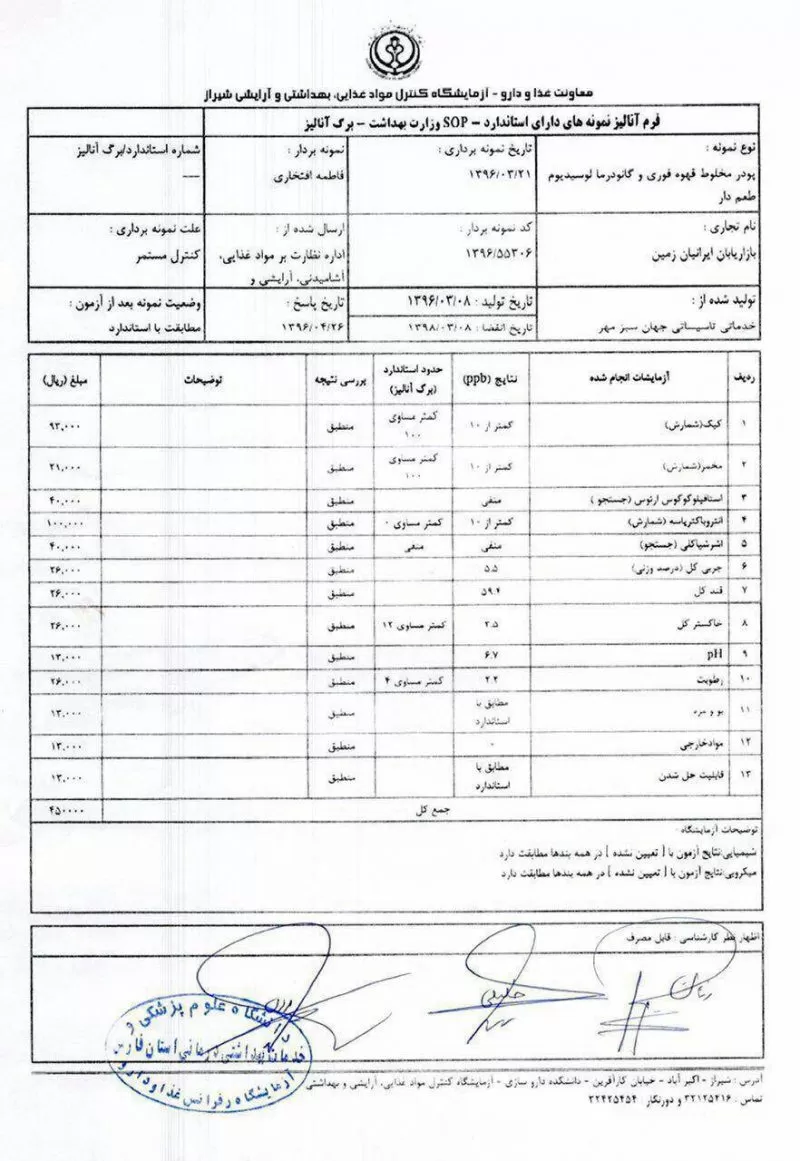 معاونت غذا و دارو - آزمایشگاه کنترل مواد غذایی، بهداشتی و آرایشی شیراز
فرم آنالیز نمونه های دارای استاندارد - SOP وزارت بهداشت - برگ آنالیز
نوع نمونه :
پودر مخلوط قهوه فوری و گانودرما لوسیدیوم
طعم دار
تاریخ نمونه برداری :
۱۳۹۶/۰۳/۲۱
نمونه بردار :
فاطمه افتخاری
شماره استاندارد/برگ آنالیز
---
نام تجاری :
بازاریابان ایرانیان زمین
کد نمونه بردار :
۱۳۹۶/۵۵۳۰۶
ارسال شده از :
اداره نظارت بر مواد غذایی،
آشامیدنی، آرایشی و
علت نمونه برداری :
کنترل مستمر
تولید شده از :
خدماتی تاسیساتی جهان سبز مهر
تاریخ تولید : ۱۳۹۶/۰۳/۰۸
تاریخ انقضا : ۱۳۹۸/۰۳/۰۸
تاریخ پاسخ :
۱۳۹۶/۰۴/۲۶
وضعیت نمونه بعد از آزمون :
مطابقت با استاندارد
ردیف آزمایشات انجام شده نتایج (ppb) حدود استاندارد (برگ آنالیز) بررسی نتیجه توضیحات مبلغ (ریال)
۱ کپک(شمارش) کمتر از ۱۰ کمتر مساوی ۱۰۰ منطبق ۹۳,۰۰۰
۲ مخمر(شمارش) کمتر از ۱۰ کمتر مساوی ۱۰۰ منطبق ۲۱,۰۰۰
۳ استافیلوکوکوس ارئوس (جستجو ) منفی منطبق ۴۰,۰۰۰
۴ انتروباکتریاسه (شمارش) کمتر از ۱۰ کمتر مساوی ۰ منطبق ۱۰۰,۰۰۰
۵ اشرشیاکلی (جستجو) منفی منفی منطبق ۴۰,۰۰۰
۶ چربی کل (درصد وزنی) ۵.۵ منطبق ۲۶,۰۰۰
۷ قند کل ۵۹.۴ منطبق ۲۶,۰۰۰
۸ خاکستر کل ۲.۵ کمتر مساوی ۱۲ منطبق ۲۶,۰۰۰
۹ pH ۶.۷ منطبق ۱۳,۰۰۰
۱۰ رطوبت ۲.۲ کمتر مساوی ۴ منطبق ۲۶,۰۰۰
۱۱ بو و مزه مطابق با استاندارد منطبق ۱۳,۰۰۰
۱۲ موادخارجی ۰ منطبق ۱۳,۰۰۰
۱۳ قابلیت حل شدن مطابق با استاندارد منطبق ۱۳,۰۰۰
جمع کل ۴۵۰۰۰۰
توضیحات آزمایشگاه :
شیمیایی:نتایج آزمون با [ تعیین نشده ] در همه بندها مطابقت دارد
میکروبی:نتایج آزمون با [ تعیین نشده ] در همه بندها مطابقت دارد
اظهار نظر کارشناسی : قابل مصرف
دانشگاه علوم پزشکی و
خدمات بهداشتی درمانی استان فارس
آزمایشگاه رفرانس غذا و دارو
آدرس : شیراز - اکبر آباد - خیابان کارآفرین - دانشکده دارو سازی - آزمایشگاه کنترل مواد غذایی، آرایشی و بهداشتی
تماس : ۳۲۱۲۵۴۱۶ و دورنگار ۲۲۴۲۵۴۵۴